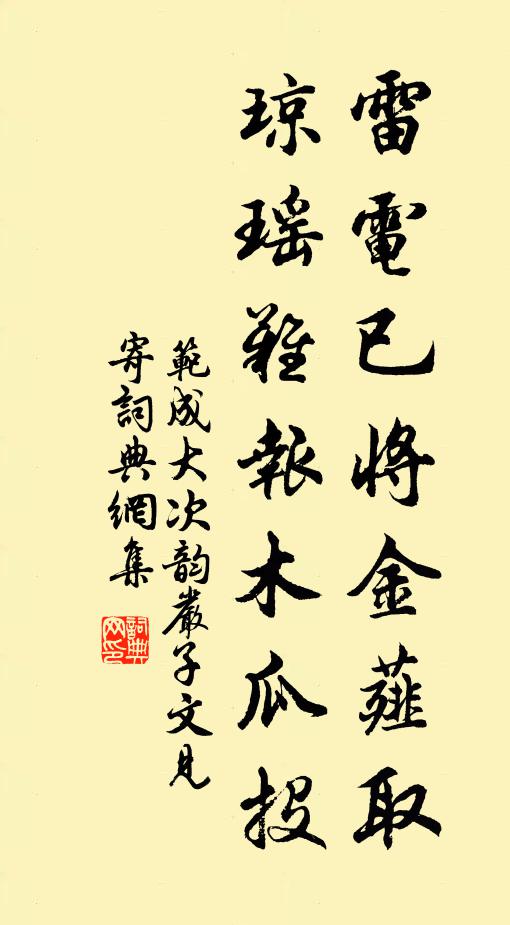 雷電已將金薤取
瓊瑤難報木瓜投
範成大次韵嚴子文見
寄詞典網集
詞典网印